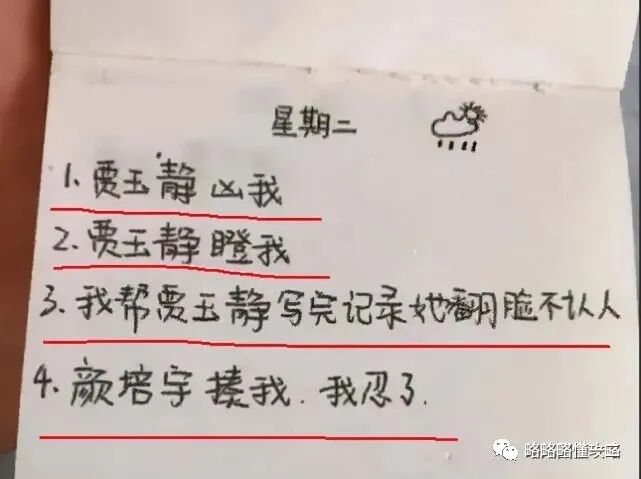 星期二
1. 贾玉静 凶我
2. 贾玉静 瞪我
3. 我帮贾玉静写完记录她翻脸不认人
4. 颜培宇 揍我. 我忍了.
略略略懂攻略